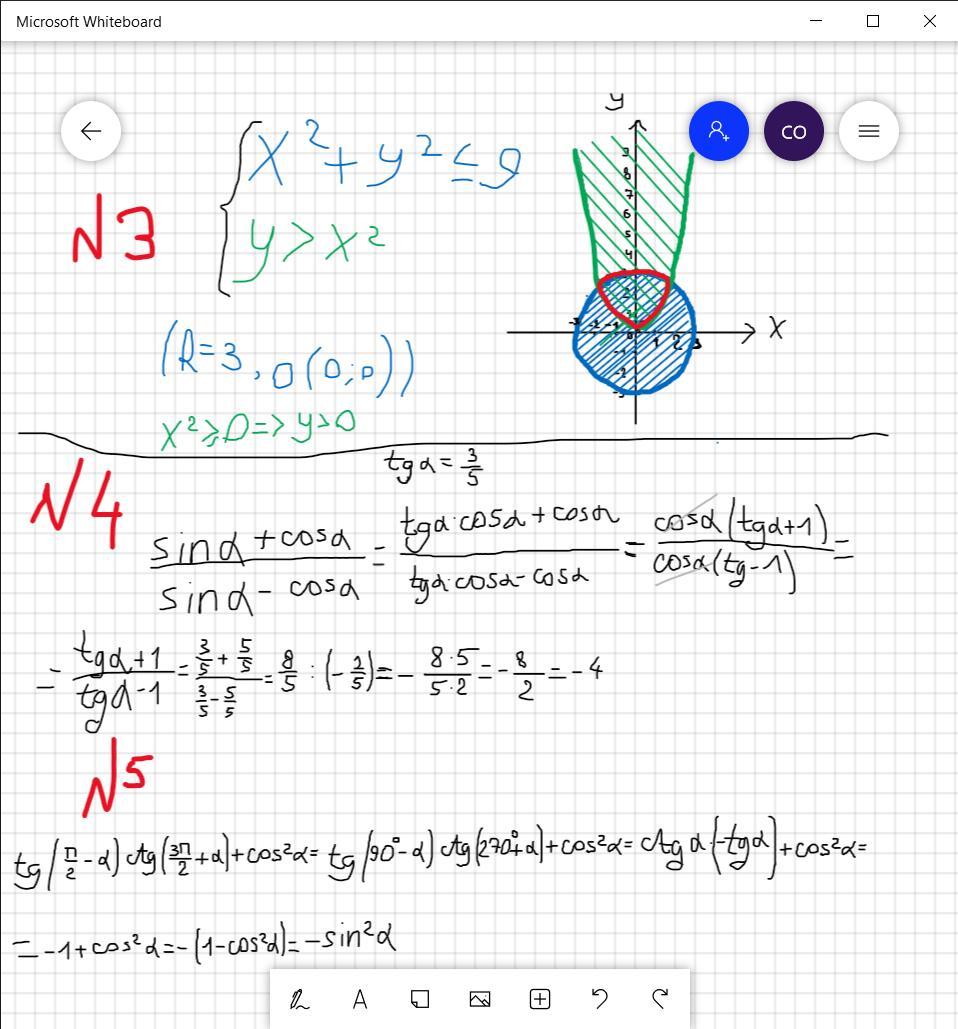 Microsoft Whiteboard
CO
N3
x² + y² ≤ 9
y > x²
(R=3, O(0;0))
x² ≥ 0 => y > 0
y
9
8
7
6
5
4
-3 -2 -1 0 1 2 3
x
-1
-2
-3
N4
tgα = 3/5
(sinα + cosα)/(sinα - cosα) = (tgα·cosα + cosα)/(tgα·cosα - cosα) = cosα(tgα+1)/cosα(tg-1) =
= (tgα+1)/(tgα-1) = (3/5 + 5/5)/(3/5 - 5/5) = 8/5 : (-2/5) = - 8·5/5·2 = - 8/2 = -4
N5
tg(π/2 - α) ctg(3π/2 + α) + cos²α = tg(90° - α) ctg(270° + α) + cos²α = ctgα·(-tgα) + cos²α =
= -1 + cos²α = -(1 - cos²α) = -sin²α
A